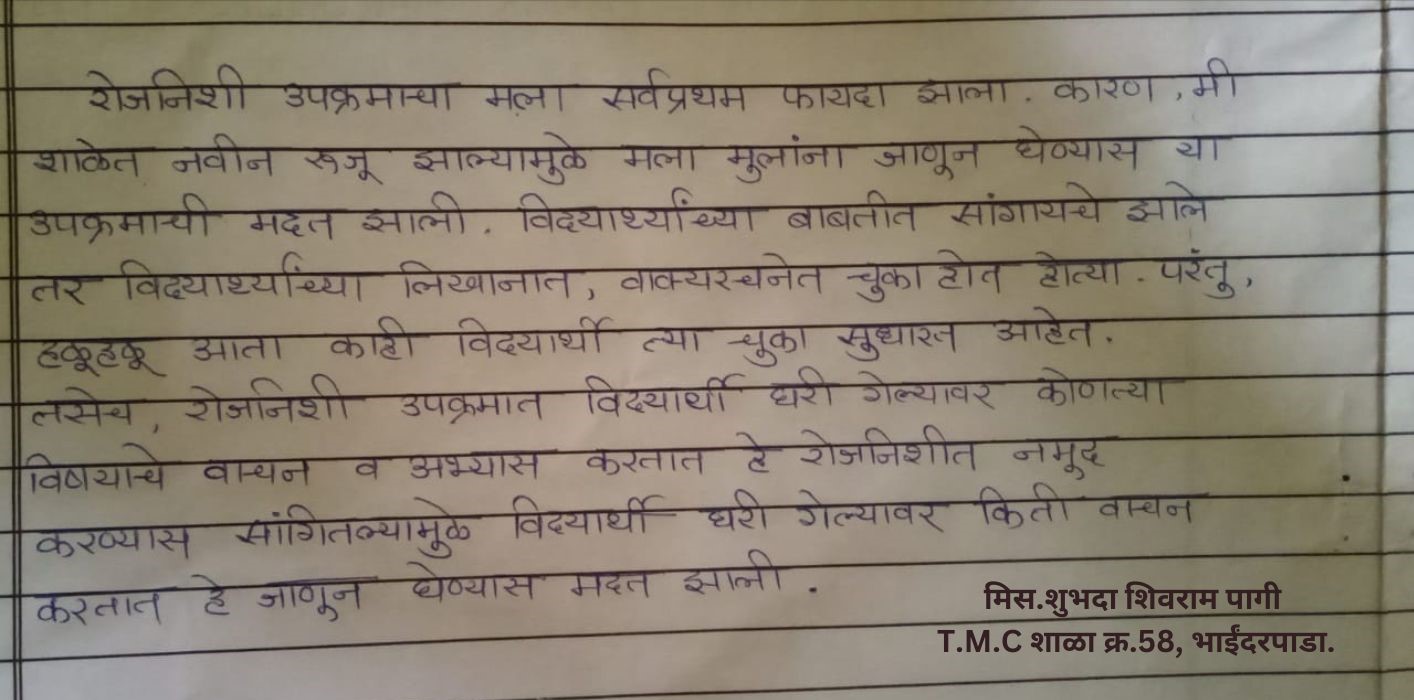 रोजनिशी उपक्रमाचा मला सर्वप्रथम फायदा झाला. कारण, मी
शाळेत नवीन रूजू झाल्यामुळे मला मुलांना जाणून घेण्यास या
उपक्रमाची मदत झाली. विदयार्थ्यांच्या बाबतीत सांगायचे झाले
तर विदयार्थ्यांच्या लिखानात, वाक्यरचनेत चुका होत होत्या. परंतु,
हळूहळू आता काही विदयार्थी त्या चुका सुधारत आहेत.
तसेच, रोजनिशी उपक्रमात विदयार्थी घरी गेल्यावर कोणत्या
विषयाचे वाचन व अभ्यास करतात हे रोजनिशीत नमुद
करण्यास सांगितल्यामुळे विदयार्थी घरी गेल्यावर किती वाचन
करतात हे जाणून घेण्यास मदत झाली.
मिस.शुभदा शिवराम पागी
T.M.C शाळा क्र.58, भाईंदरपाडा.